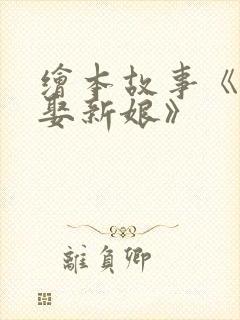 繪本故事《
娶新娘》
離負卿